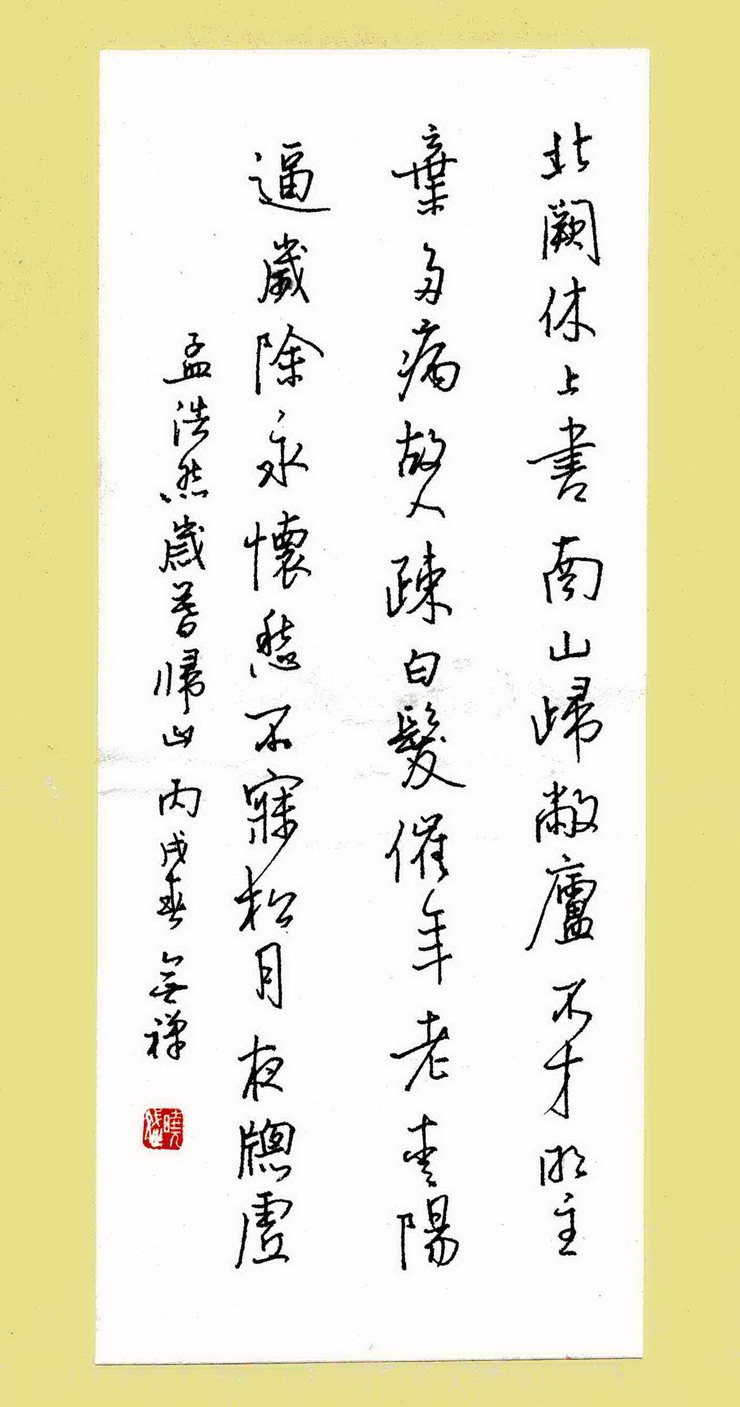 北闕休上書南山歸敝廬不才明主
棄多病故人疎白髮催年老青陽
逼歲除永懷愁不寐松月夜牕虛
孟浩然歲暮歸山 丙戌春 無禪